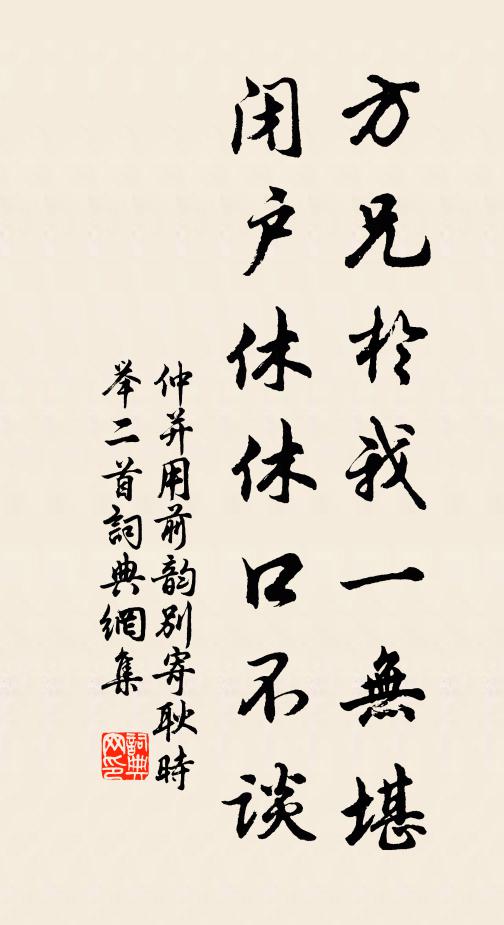 方兄於我一無堪
闭户休休口不谈
仲并用前韵别寄耿時
举二首詞典網集
詞典网印